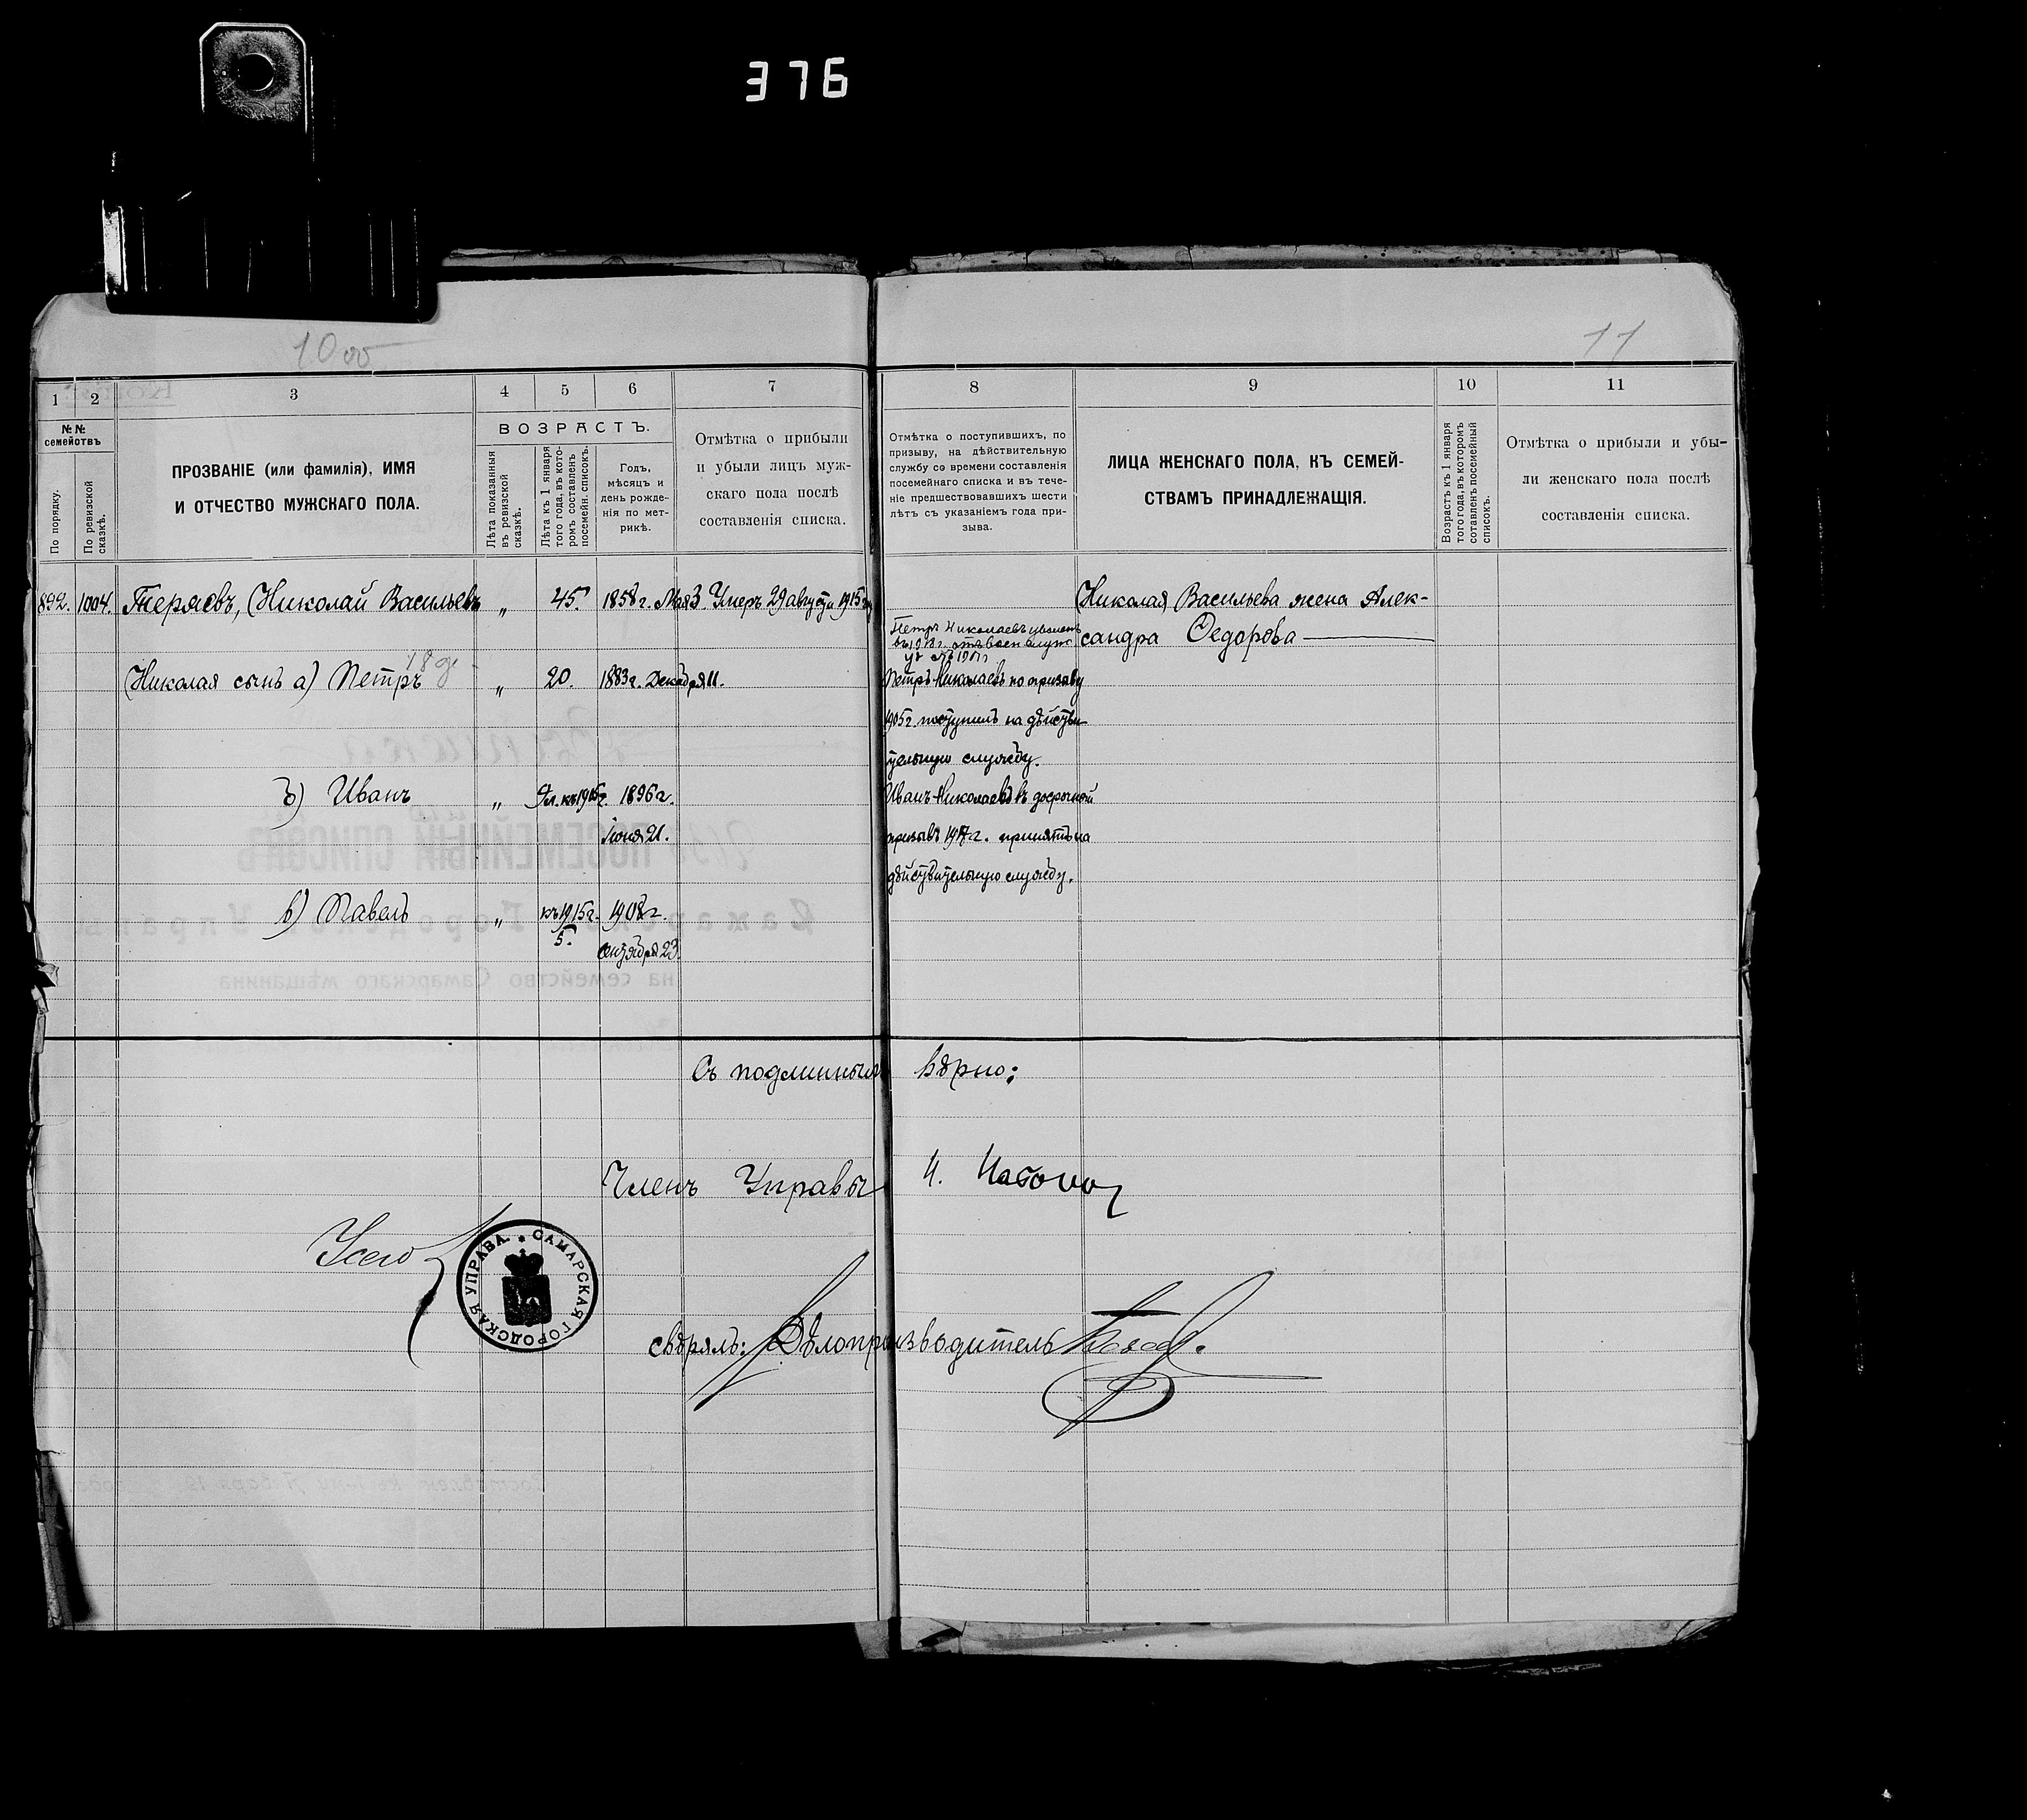 376
10 об
11
1
2
3
4
5
6
7
8
9
10
11
№ №
семействъ
По порядку.
По ревизской
сказкѣ.
ПРОЗВАНІЕ (или фамилія), ИМЯ
И ОТЧЕСТВО МУЖСКАГО ПОЛА.
ВОЗРАСТЪ.
Лѣта показанныя
въ ревизской
сказкѣ.
Лѣта къ 1 января
того года, въ кото-
ромъ составленъ
посемейн. списокъ.
Годъ,
мѣсяцъ и
день рожде-
нія по мет-
рикѣ.
Отмѣтка о прибыли
и убыли лицъ муж-
скаго пола послѣ
составленія списка.
Отмѣтка о поступившихъ, по
призыву, на дѣйствительную
службу со времени составленія
посемейнаго списка и въ тече-
ніе предшествовавшихъ шести
лѣтъ съ указаніемъ года при-
зыва.
ЛИЦА ЖЕНСКАГО ПОЛА, КЪ СЕМЕЙ-
СТВАМЪ ПРИНАДЛЕЖАЩІЯ.
Возрастъ къ 1 января
того года, въ которомъ
составленъ посемейный
списокъ.
Отмѣтка о прибыли и убы-
ли женскаго пола послѣ
составленія списка.
892. 1004. Теряевъ, Николай Васильевъ „ 45. 1858 г. Мая 3. Умеръ 29 августа 1915
Николая Васильева жена Алек-
сандра Федорова
Петръ Николаевъ
Николая сынъ а) Петръ „ 20. 1883 г. Декабря 11.
Петръ Николаевъ по призыву
1905 г. поступилъ на дѣйстви-
тельную службу.
б) Иванъ „ къ 1915 г. 1896 г.
Іюня 21.
Иванъ Николаевъ въ досрочный
призывъ 1917 г. принятъ на
дѣйствительную службу.
в) Павелъ „ къ 1915 г. 1908 г.
5. Сентября 23.
Съ подлиннымъ вѣрно:
Членъ Управы И.
САМАРСКАЯ ГОРОДСКАЯ УПРАВА.
свѣрялъ: Дѣлопроизводитель